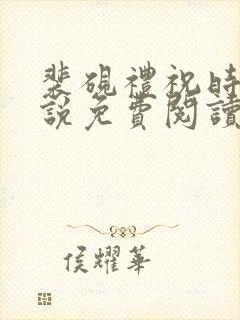 裴硯禮祝時
說免費閱讀
侯耀華